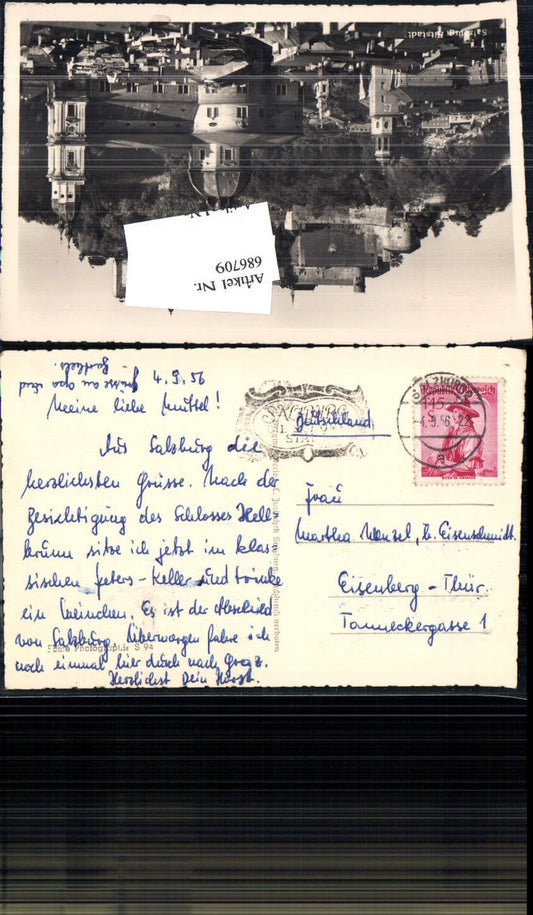 Salzburg, Altstadt
Artikel Nr.
686709
Grüsse an Opa und
4. 9. 56
Meine liebe Muttel!
Aus Salzburg die
herzlichsten Grüsse. Nach der
Besichtigung des Schlosses Hell-
brunn sitze ich jetzt im klas-
sischen Peters-Keller und trinke
ein Weinchen. Es ist der Abschied
von Salzburg. Übermorgen fahre ich
noch einmal hier durch nach Graz.
Herzlichst Dein Horst.
S 94
SALZBURG
4.9.56
Republik Österreich
145
Deutschland
Frau
Martha Menzel, b. Eisenschmidt.
Eisenberg-Thür.
Tanneckergasse 1